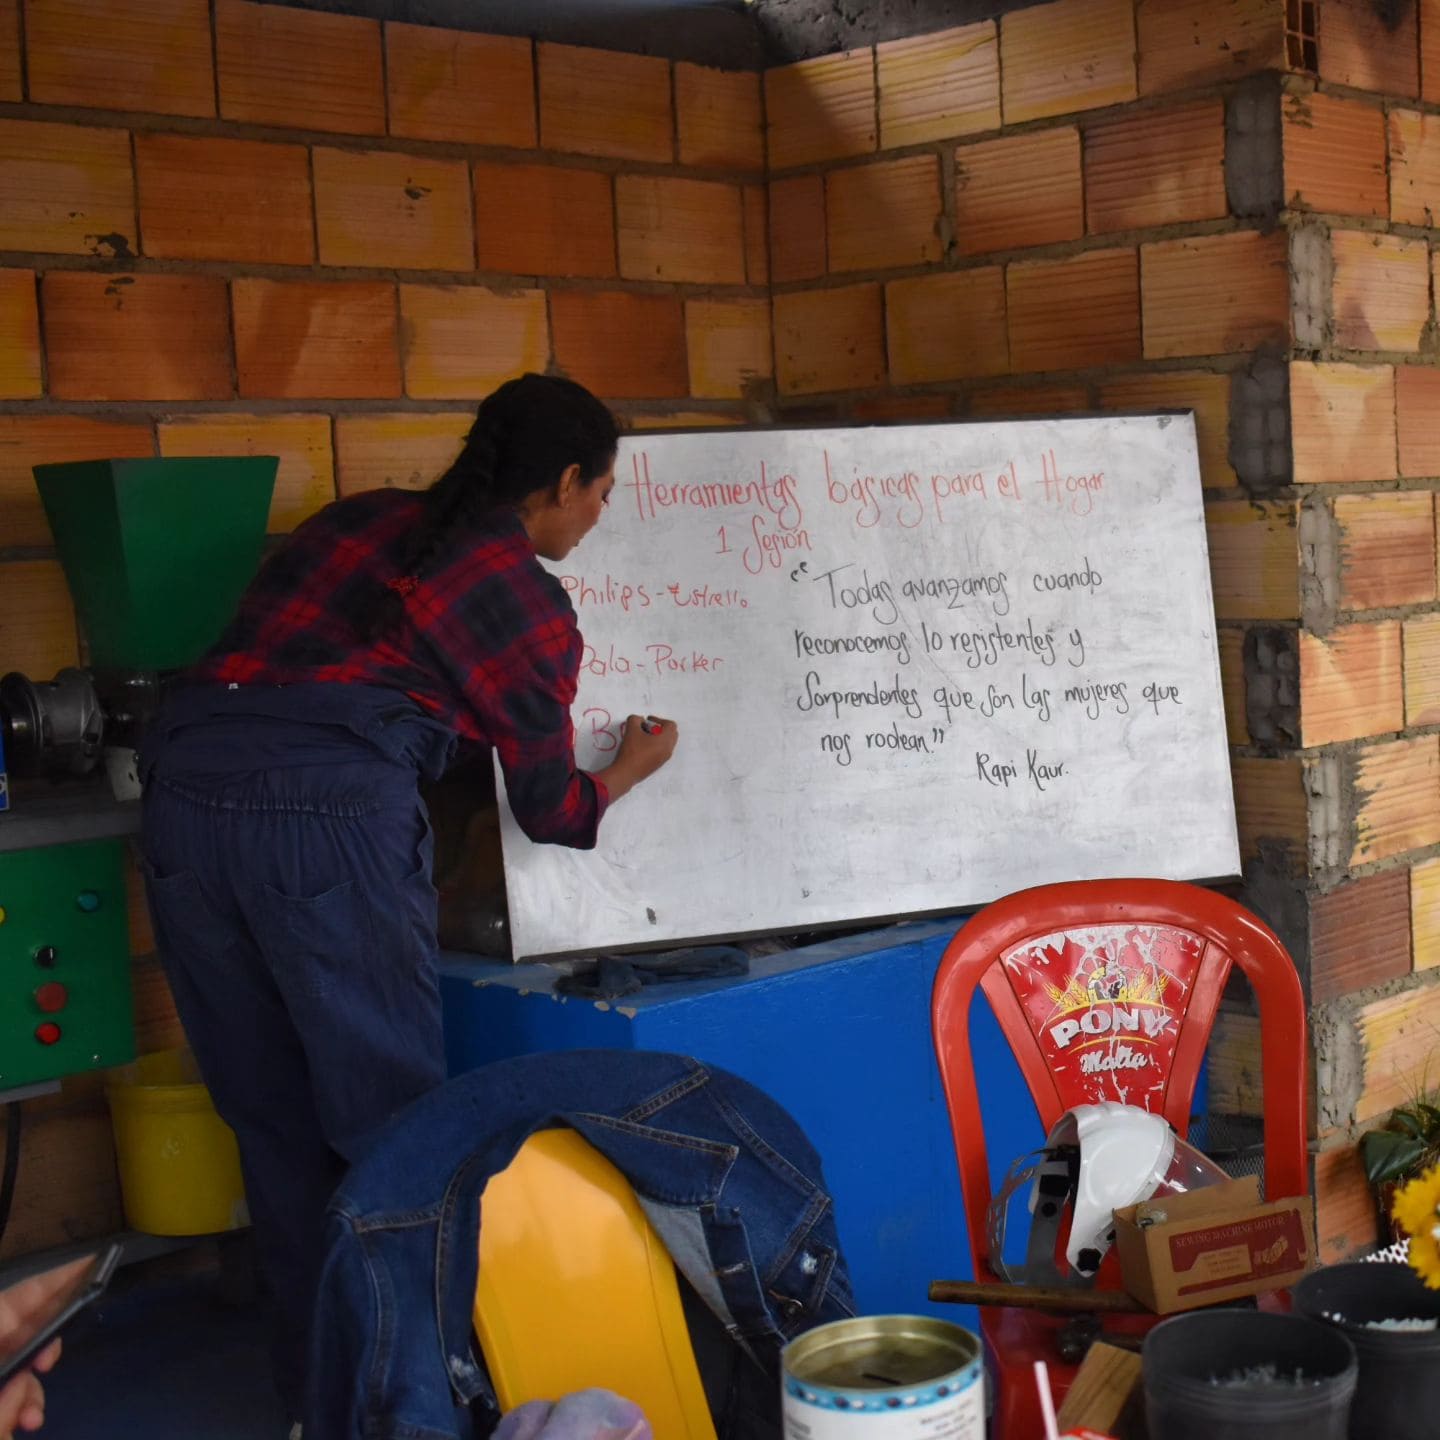 Herramientas básicas para el Hogar
1 Sesión
Philips-Estrella
Pala-Parker
B
"Todas avanzamos cuando
reconocemos lo resistentes y
Sorprendentes que son las mujeres que
nos rodean."
Rapi Kaur.
PONY
Malta
SEWING MACHINE MOTOR